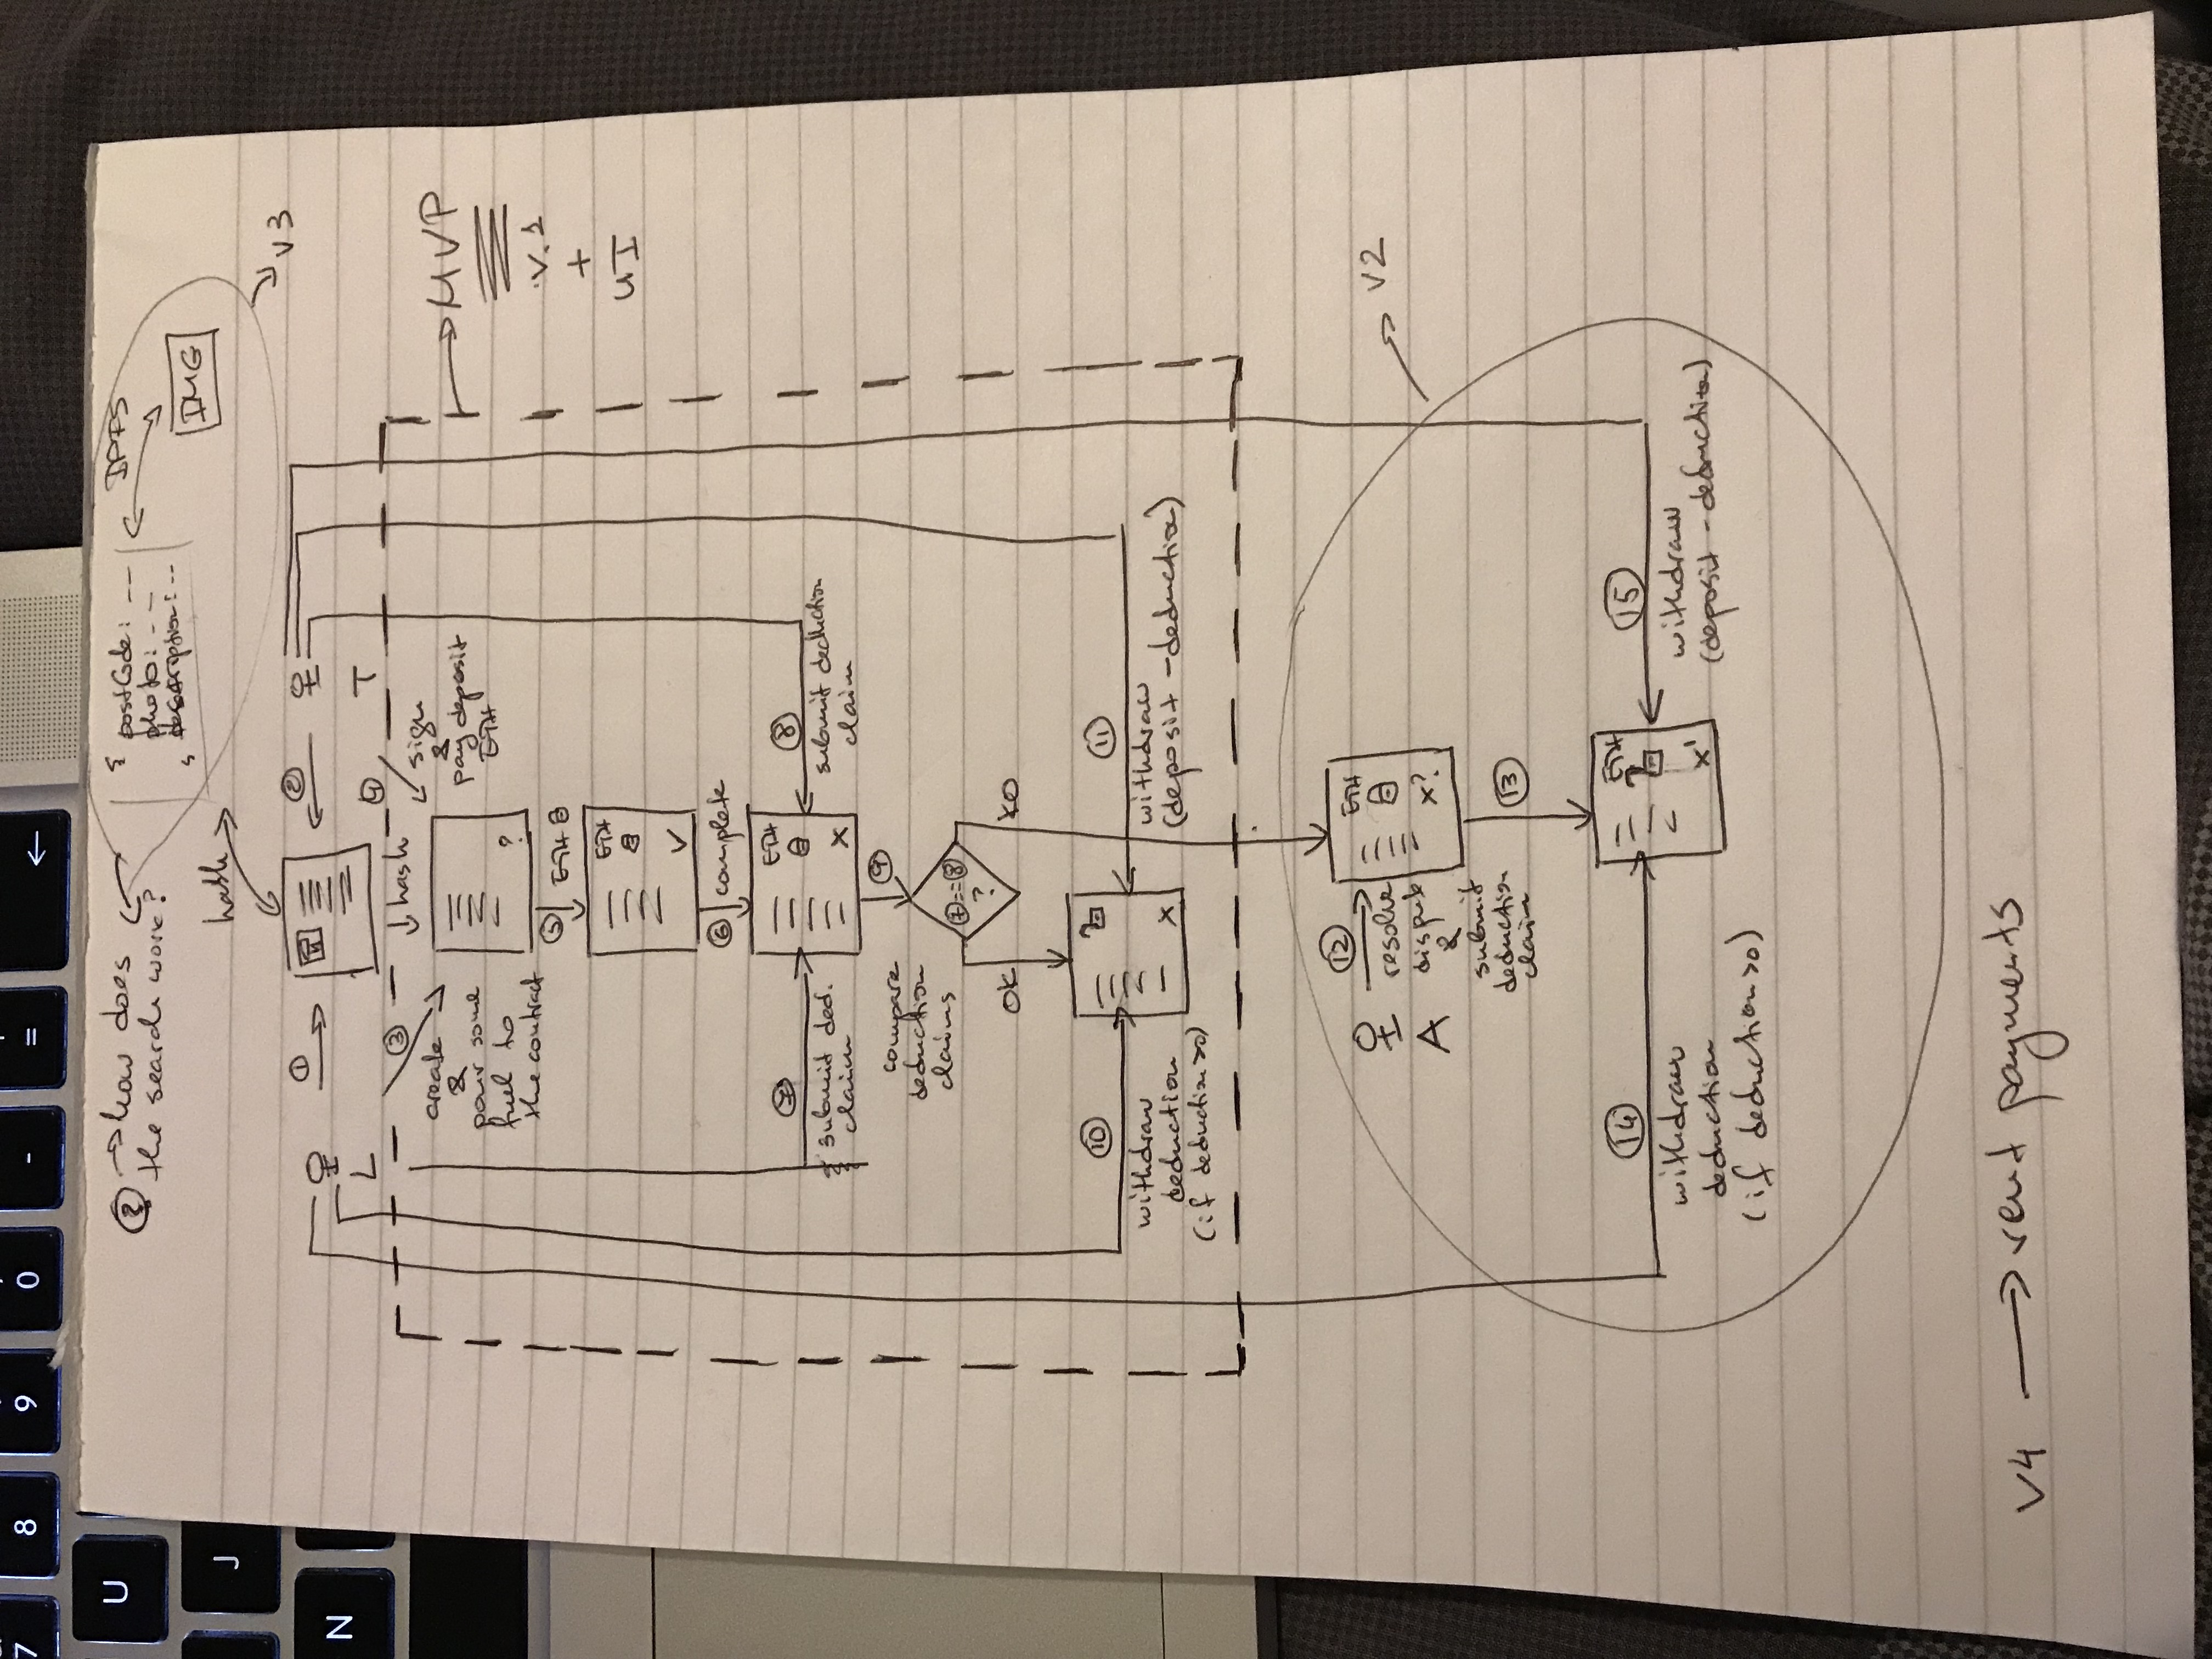 7
8
9
0
-
=
←
U
J
N
? → how does
the search work?
{ postCode: --
photo: --
description: --
}
IPFS
IMG
hash
V3
①
②
L
T
③
④
hash
create
&
pour some
fuel to
the contract
sign
&
pay deposit
ETH
?
MVP
v.1
+
UI
⑤
ETH
ETH
V
⑥ complete
ETH
X
⑦
submit ded.
claim
⑧
submit deduction
claim
⑨
compare
deduction
claims
⑦==⑧
?
OK
KO
⑩
withdraw
deduction
(if deduction >0)
X
⑪
withdraw
(deposit - deduction)
⑫
resolve
dispute
&
submit
deduction
claim
A
ETH
X?
V2
⑬
⑭
withdraw
deduction
(if deduction >0)
ETH
X'
⑮
withdraw
(deposit - deduction)
V4 → rent payments